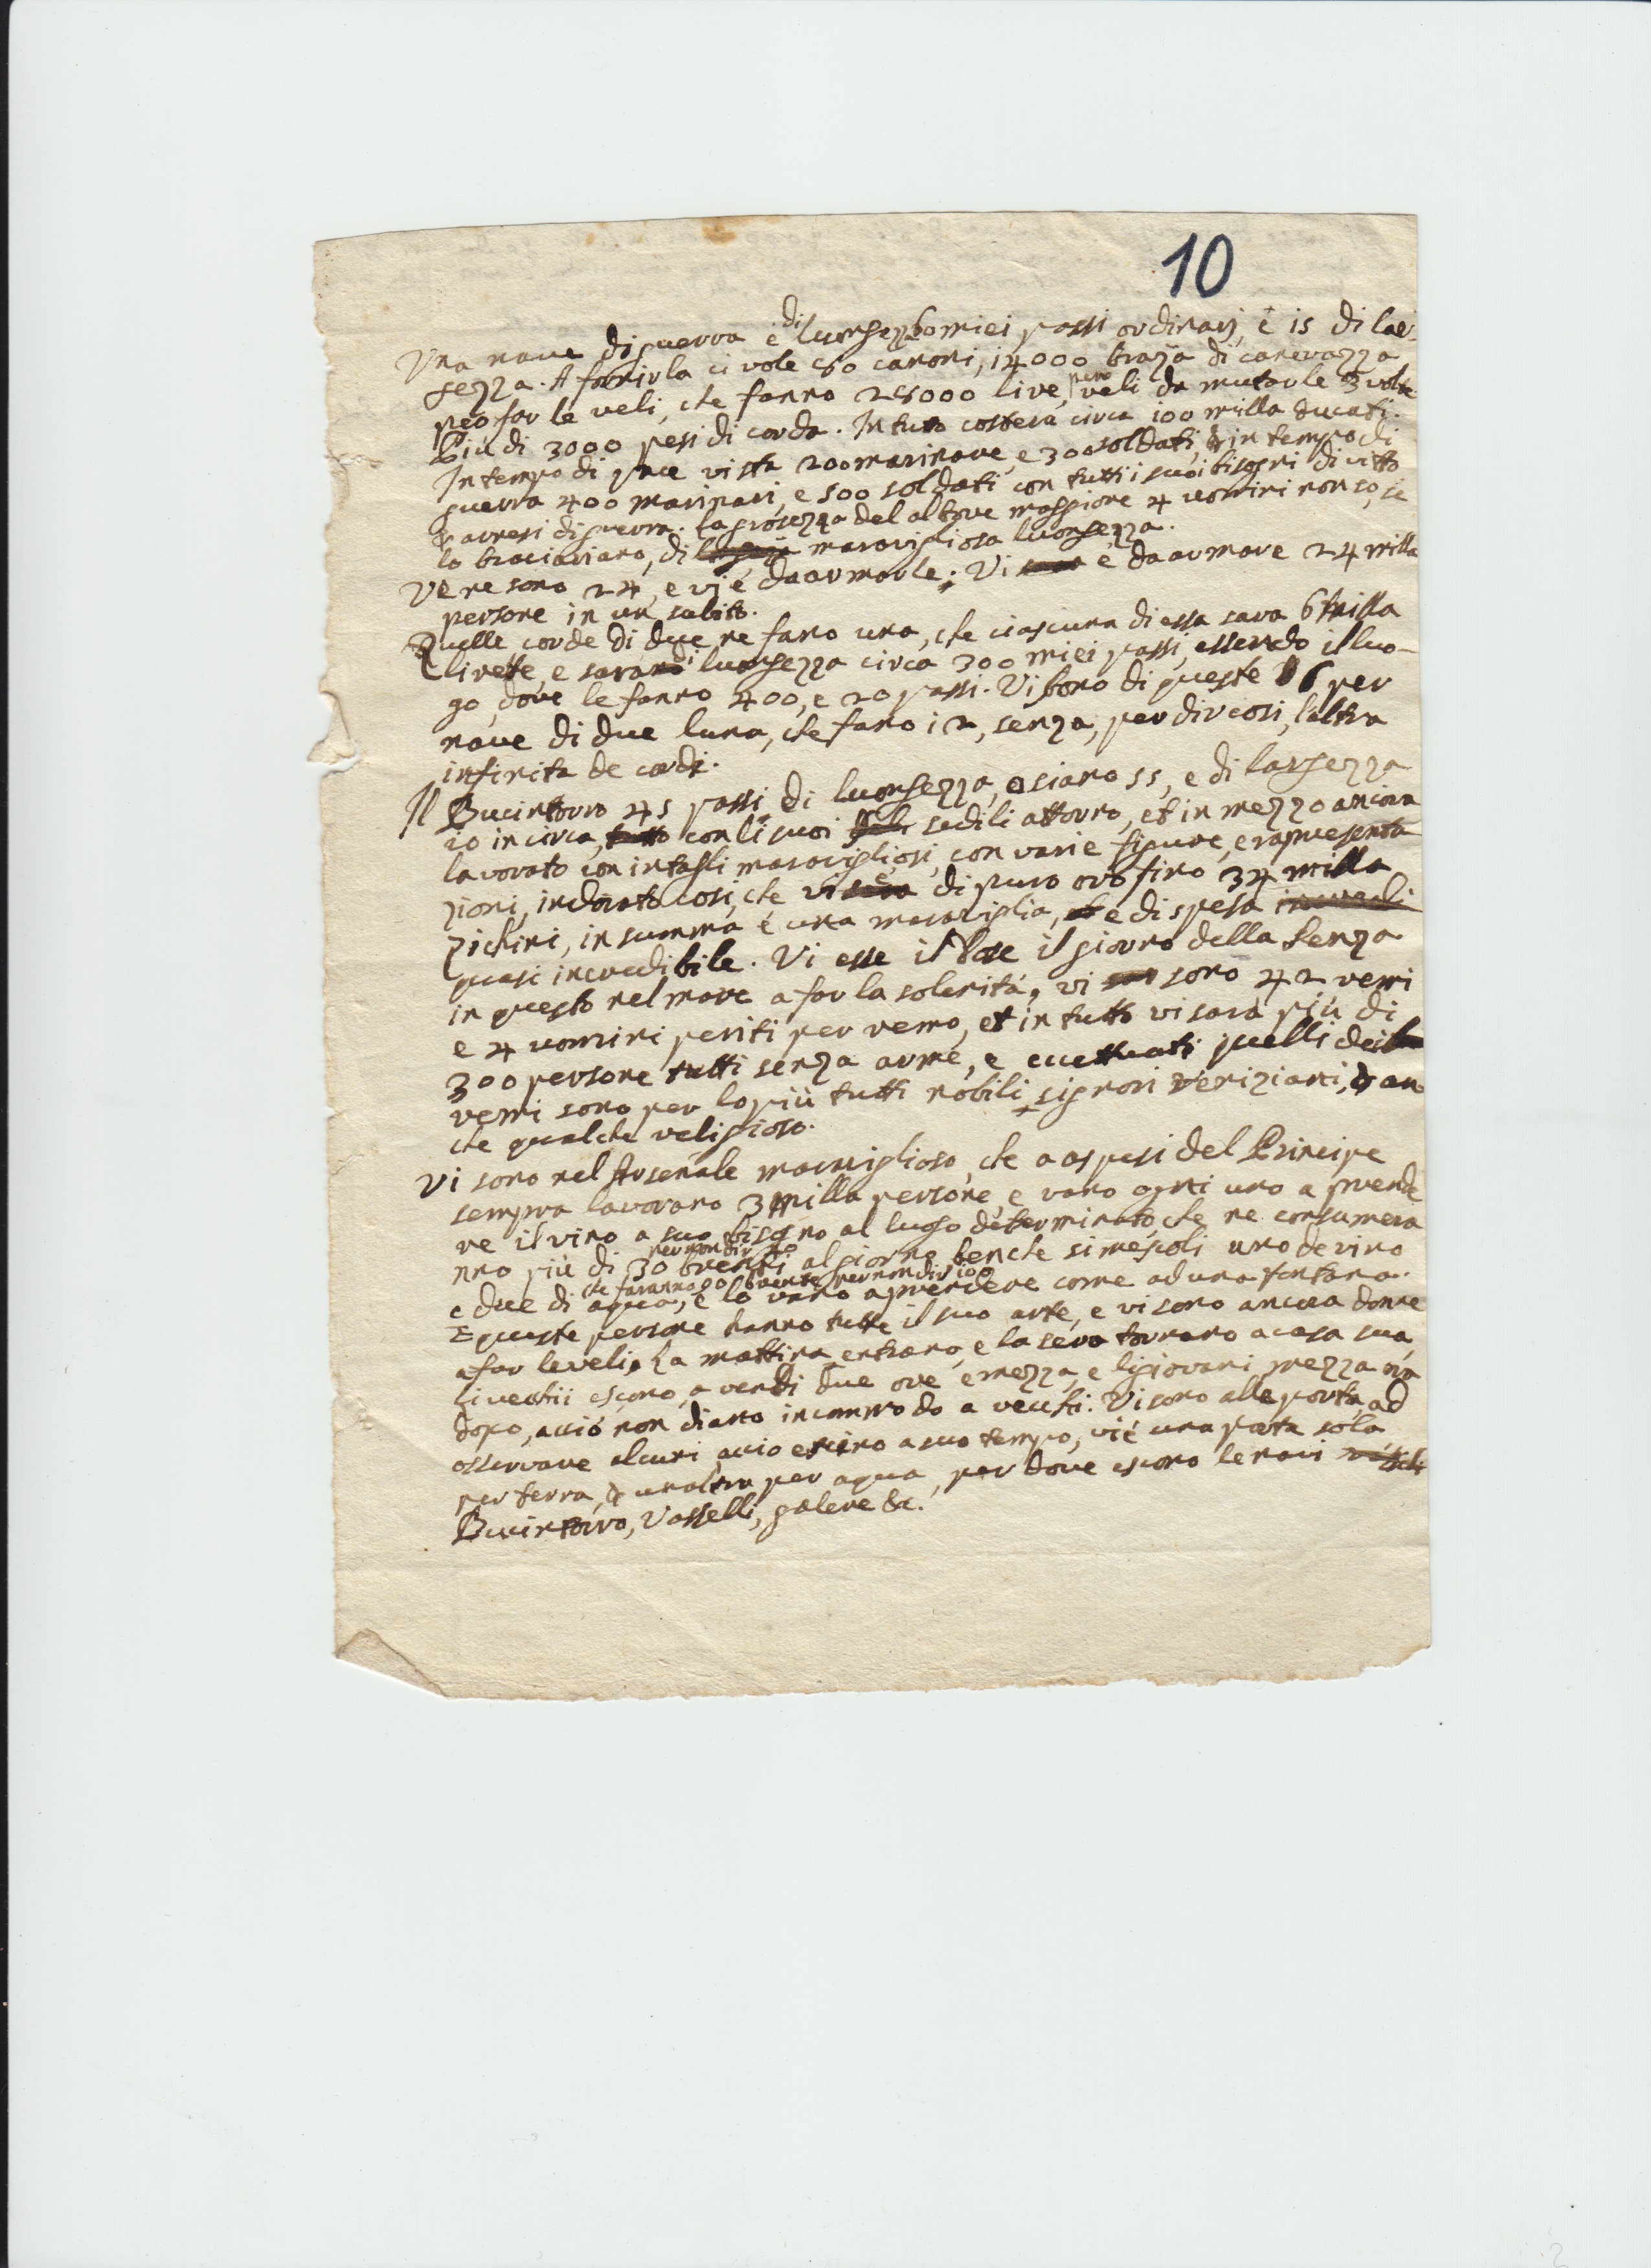 10
Una nave di guerra è di luonghezza 60 miei passi ordinarj, è 15 di lar-
ghezza. A fornirla ci vole 80 canoni, 14000 braza di canevazza
per far le veli, che fanno 28000 live, però veli da mutarle 3 volte
Più di 3000 pesi di corda. In tuto costerà circa 100 milla ducati.
In tempo di pace vi sta 200 marinare, e 300 soldati, & in tempo di
guerra 400 marinari, e 500 soldati con tutti i suoi bisogni di vitto
& arnesi di guerra. La grosezza del albore maggiore 4 uomini non so, se
lo braciariano, di maravigliosa luongezza.
Ve ne sono 24, e vi è da armarle; Vi è da armare 24 milla
persone in un subito.
Quelle corde di due ne fano una, che ciascuna di essa sara 6 milla
lirete, e sarano di luongezza circa 300 miei passi, essendo il luo-
go, dove le fanno 400, e 20 passi. Vi sono di queste 6 per
nave di due l'una, che fano 12, senza, per dir cosi, l'altra
infinita de cordi.
Il Bucintoro 45 passi di luonghezza, o siano 55, e di larghezza
10 in circa, con li suoi sedili attorno, et in mezzo ancora
lavorato con intagli maravigliosi, con varie figure, e rapresenta
zioni, indorato cosi, che vi è di puro oro fino 34 milla
zichini, in summa è una maraviglia, e di spesa
quasi incredibile. Vi esse il Doge il giorno della Senza
in questo nel mare a far la solenità, vi sono 42 remi
e 4 uomini periti per remo, et in tutto vi sarà più di
300 persone tutti senza arme, e eccettuati quelli dei
remi sono per lo più tutti nobili signori Veniziani, & an
che qualche religioso.
Vi sono nel Arsenale maraviglioso, che a aspesi del Principe
sempra lavorano 3 milla persone, e vano ogni uno a prende
re il vino a suo bisogno al luogo determinato, che ne consumera
nno più di 30 brenti per non dir al giorno benche si mescoli uno de vino
e due di aqua, che faranno 90 brente per non dir 100 e lo vano a prendere come ad una fontana.
E queste persone hanno tutte il suo arte, e vi sono ancora donne
a far le veli, La mattina entrano, e la sera tornano a casa sua,
li vecchii escono a venti due ore e mezza, e li giovani mezza ora
dopo, acciò non diano incommodo a vecchi. Vi sono alle porte, ad
osservare alcuni, acciò escino a suo tempo, vi è una porta sola
per terra, & un altra per aqua, per dove escono le navi
Bucintoro, Vasselli, galere &c.